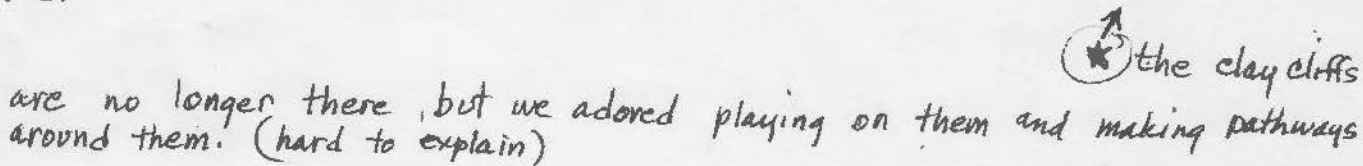 the clay cliffs
are no longer there, but we adored playing on them and making pathways
around them. (hard to explain)